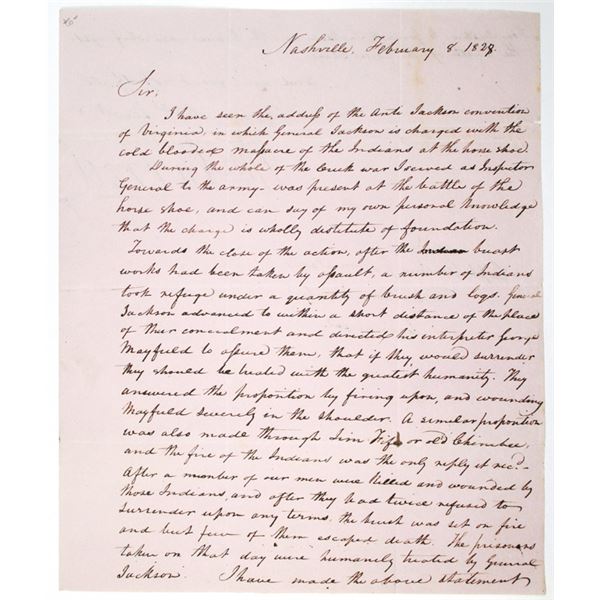 Nashville, February 8. 1828.
Sir,
I have seen the address of the Anti Jackson convention
of Virginia, in which General Jackson is charged with the
cold blooded massacre of the Indians at the horse shoe.
During the whole of the Creek war I served as Inspector
General to the army - was present at the battle of the
horse shoe, and can say of my own personal knowledge
that the charge is wholly destitute of foundation.
Towards the close of the action, after the Indian breast
works had been taken by assault, a number of Indians
took refuge under a quantity of brush and logs. General
Jackson advanced to within a short distance of the place
of their concealment and directed his interpreter George
Mayfield to assure them, that if they would surrender
they should be treated with the greatest humanity. They
answered the proposition by firing upon, and wounding
Mayfield severely in the shoulder. A similar proposition
was also made through Jim Fife or old Chinnibee,
and the fire of the Indians was the only reply it recd.
After a number of our men were killed and wounded by
those Indians, and after they had twice refused to
surrender upon any terms, the brush was set on fire
and but few of them escaped death. The prisoners
taken on that day were humanely treated by General
Jackson. I have made the above statement